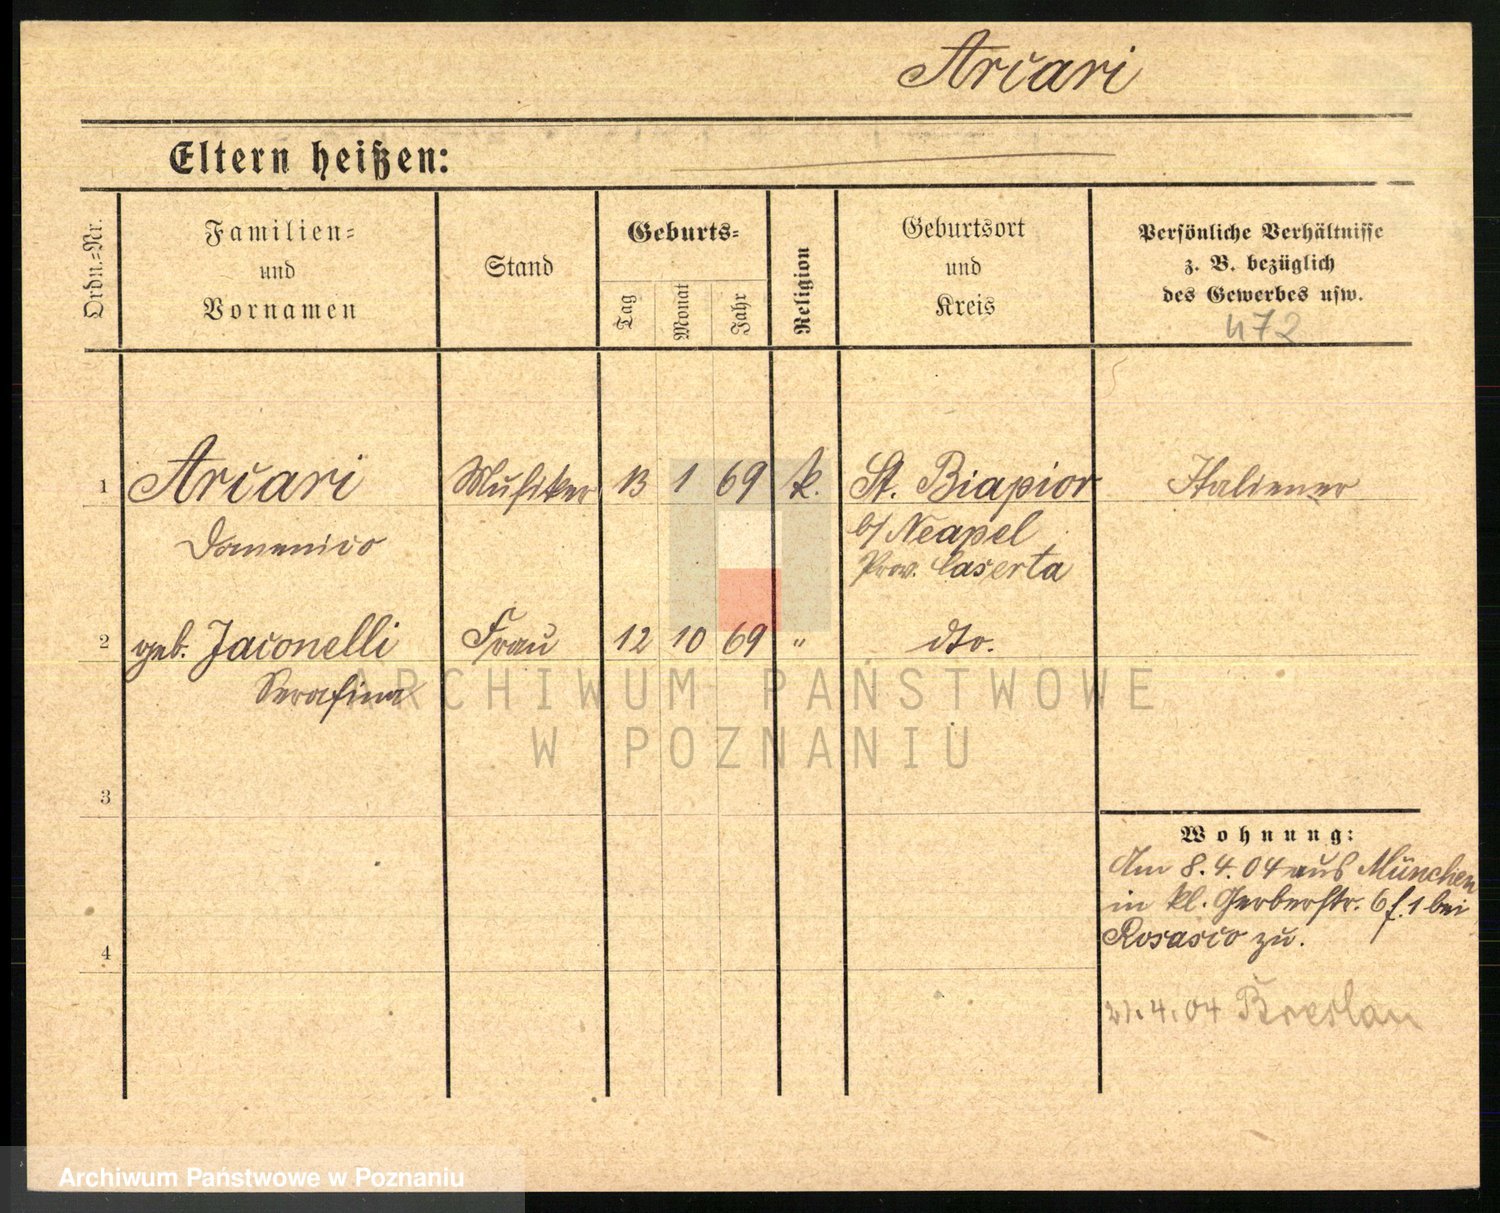 Arcari
Eltern heißen:
Ordn.=Nr.
Familien=
und
Vornamen
Stand
Geburts=
Tag
Monat
Jahr
Religion
Geburtsort
und
Kreis
Persönliche Verhältnisse
z. B. bezüglich
des Gewerbes usw.
472
1 Arcari Musiker 13 1 69 k. St. Biapior Italiener
Domenico b/ Neapel
Prov. Caserta
2 geb. Jaconelli Frau 12 10 69 " dto.
Serafina
ARCHIWUM PAŃSTWOWE
W POZNANIU
3
Wohnung:
Am 8.4.04 aus München
in kl. Gerberstr. 6 f. 1 bei
Rosasco zu.
4
21.4.04 Breslau
Archiwum Państwowe w Poznaniu